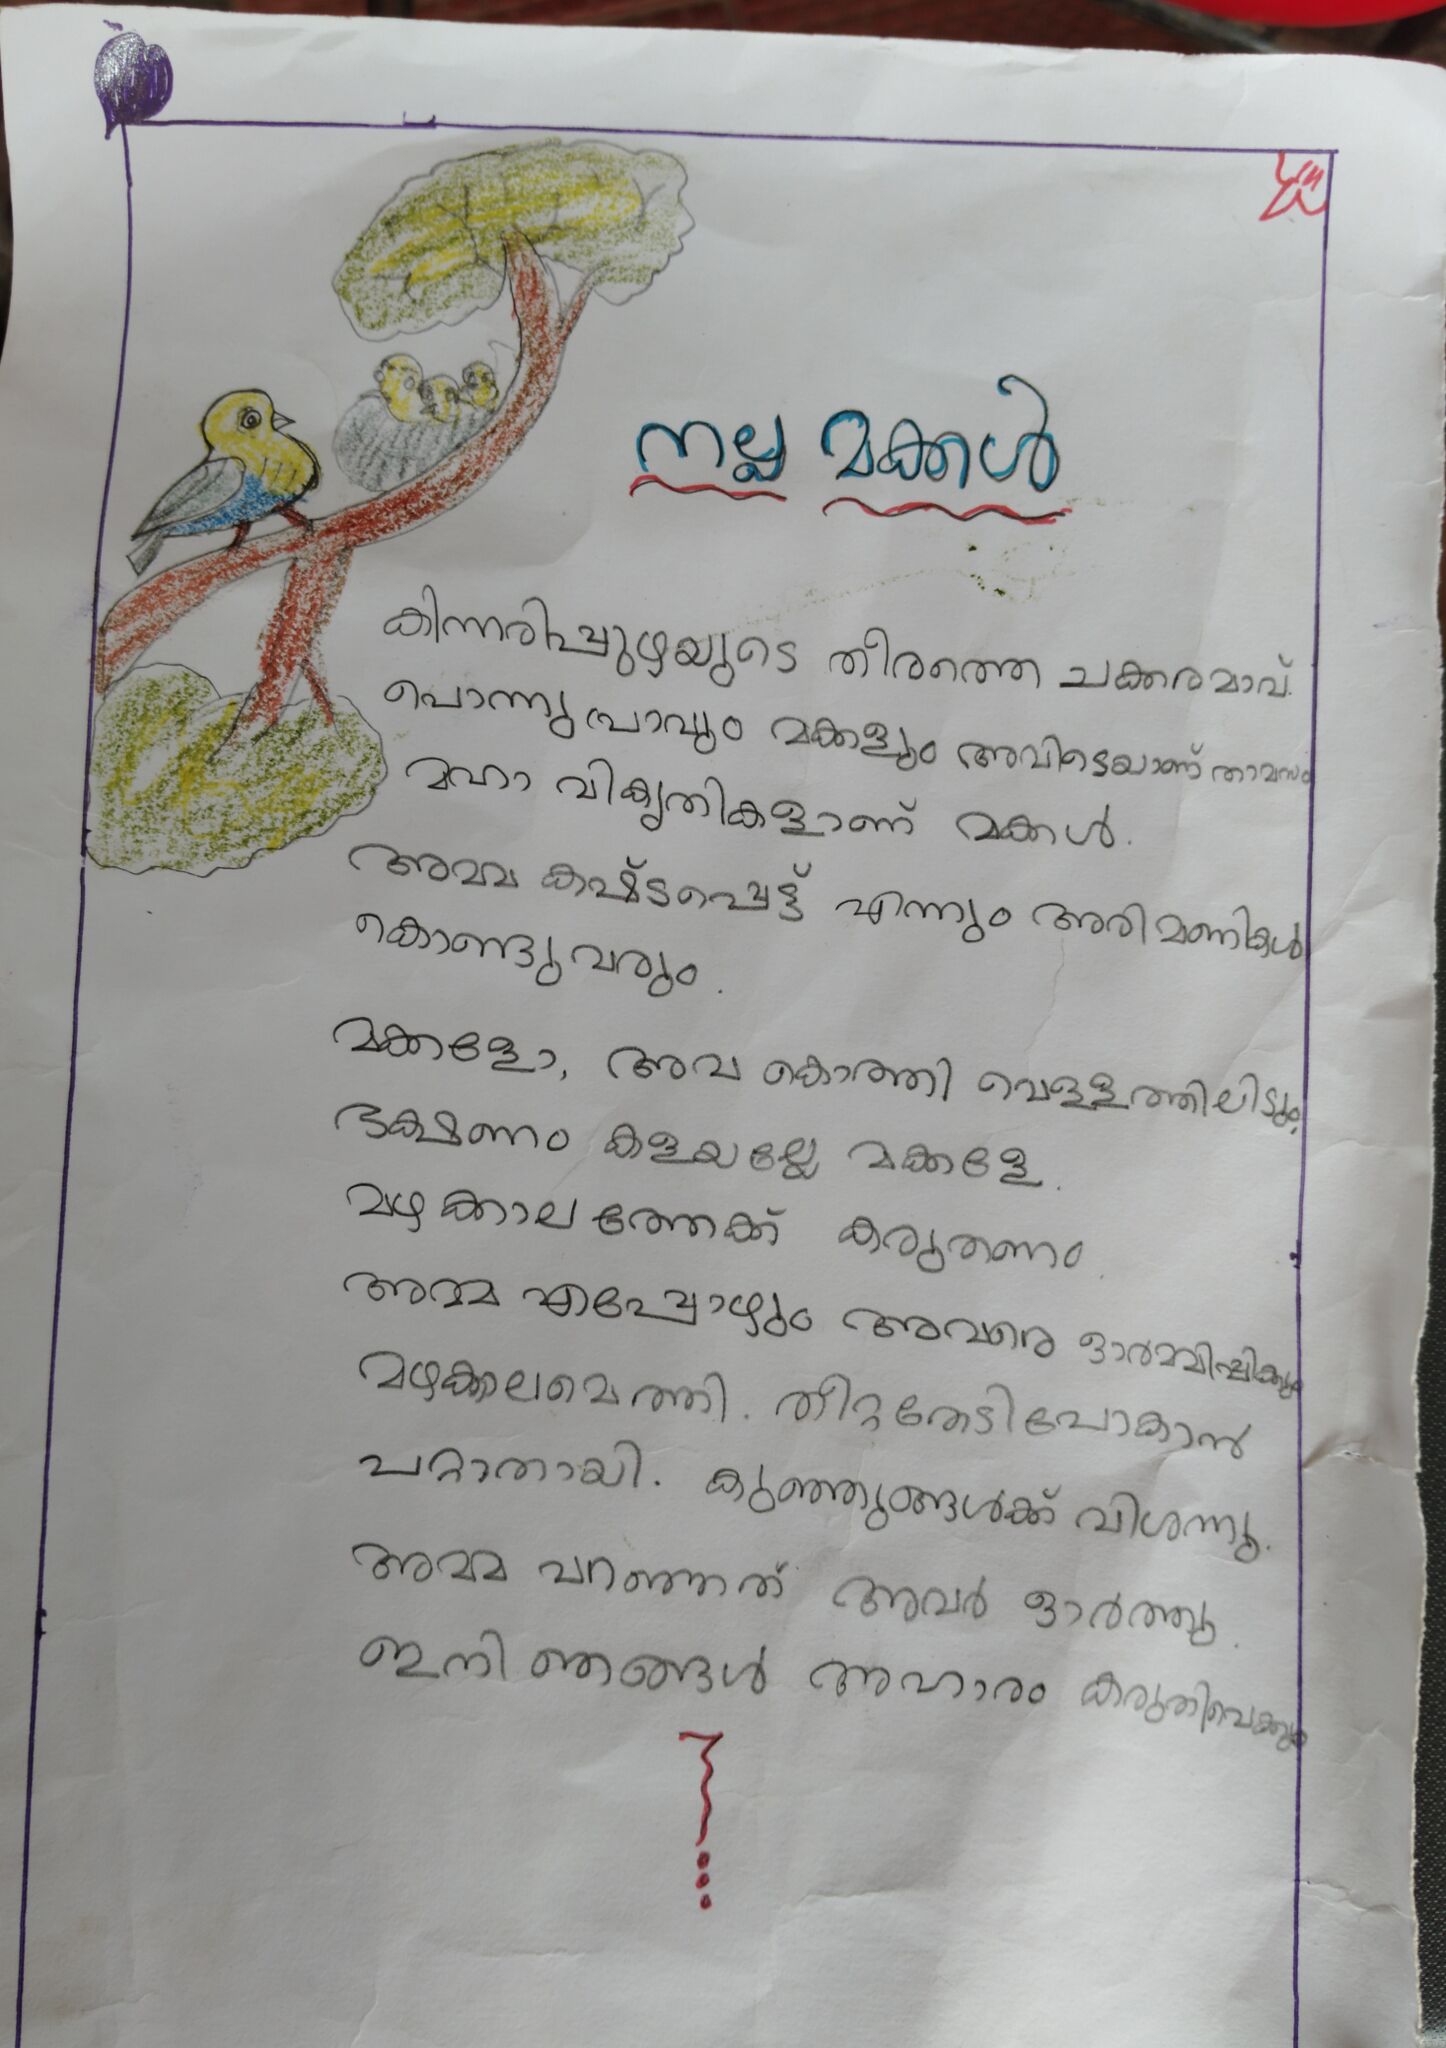 നല്ല മക്കൾ
കിന്നരിപ്പുഴയുടെ തീരത്തെ ചക്കരമാവ്.
പൊന്നുപ്രാവും മക്കളും അവിടെയാണ് താമസം
മഹാ വികൃതികളാണ് മക്കൾ.
അമ്മ കഷ്ടപ്പെട്ട് എന്നും അരിമണികൾ
കൊണ്ടുവരും.
മക്കളോ, അവ കൊത്തി വെള്ളത്തിലിടും.
ഭക്ഷണം കളയല്ലേ മക്കളേ.
മഴക്കാലത്തേക്ക് കരുതണം.
അമ്മ എപ്പോഴും അവരെ ഓർമ്മിപ്പിക്കും
മഴക്കാലമെത്തി. തീറ്റതേടിപോകാൻ
പറ്റാതായി. കുഞ്ഞുങ്ങൾക്ക് വിശന്നു.
അമ്മ പറഞ്ഞത് അവർ ഓർത്തു.
ഇനി ഞങ്ങൾ അഹാരം കരുതിവെക്കും